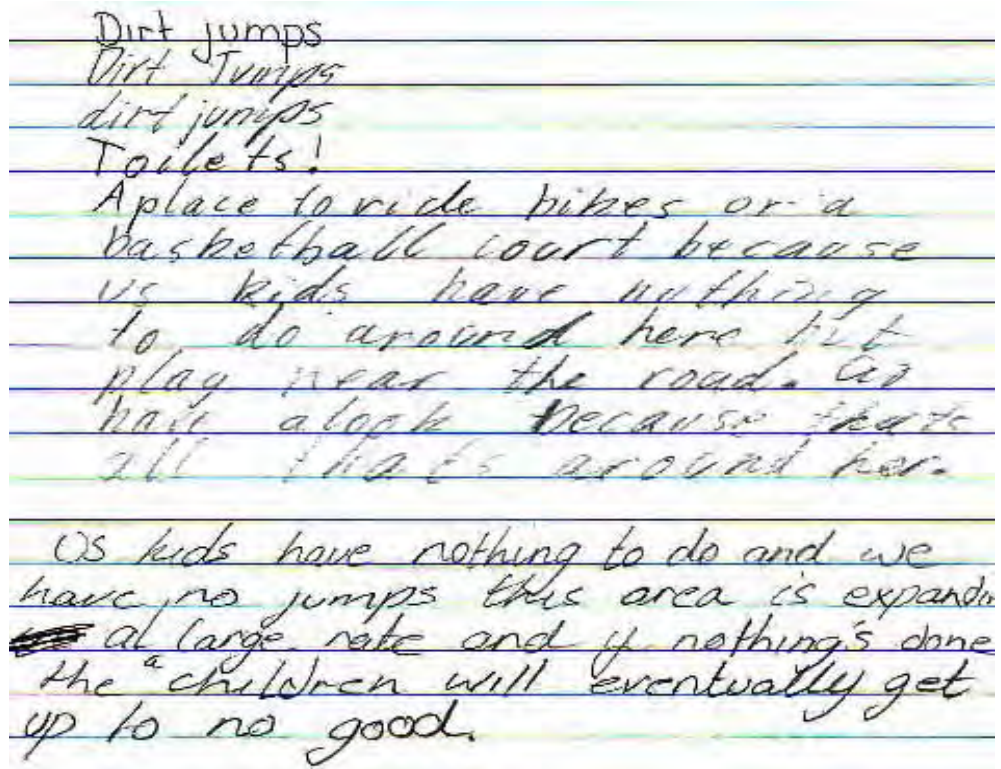 Dirt jumps
Dirt Jumps
dirt jumps
Toilets!
A place to ride bikes or a
basketball court because
us kids have nothing
to do around here but
play near the road. Go
have a look because thats
all thats around her.
US kids have nothing to do and we
have no jumps this area is expandin
at large rate and if nothing's done
a
the children will eventually get
up to no good.